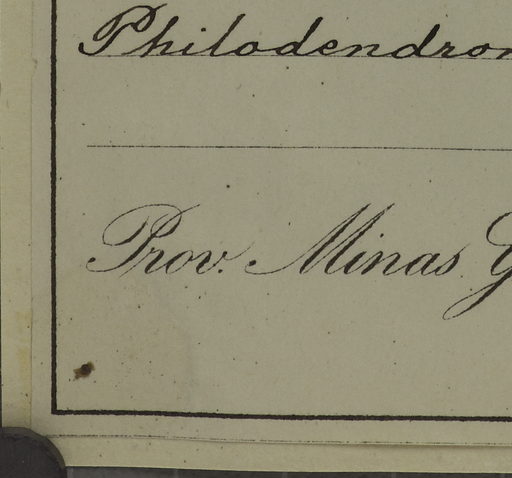 Philodendron
Prov. Minas G